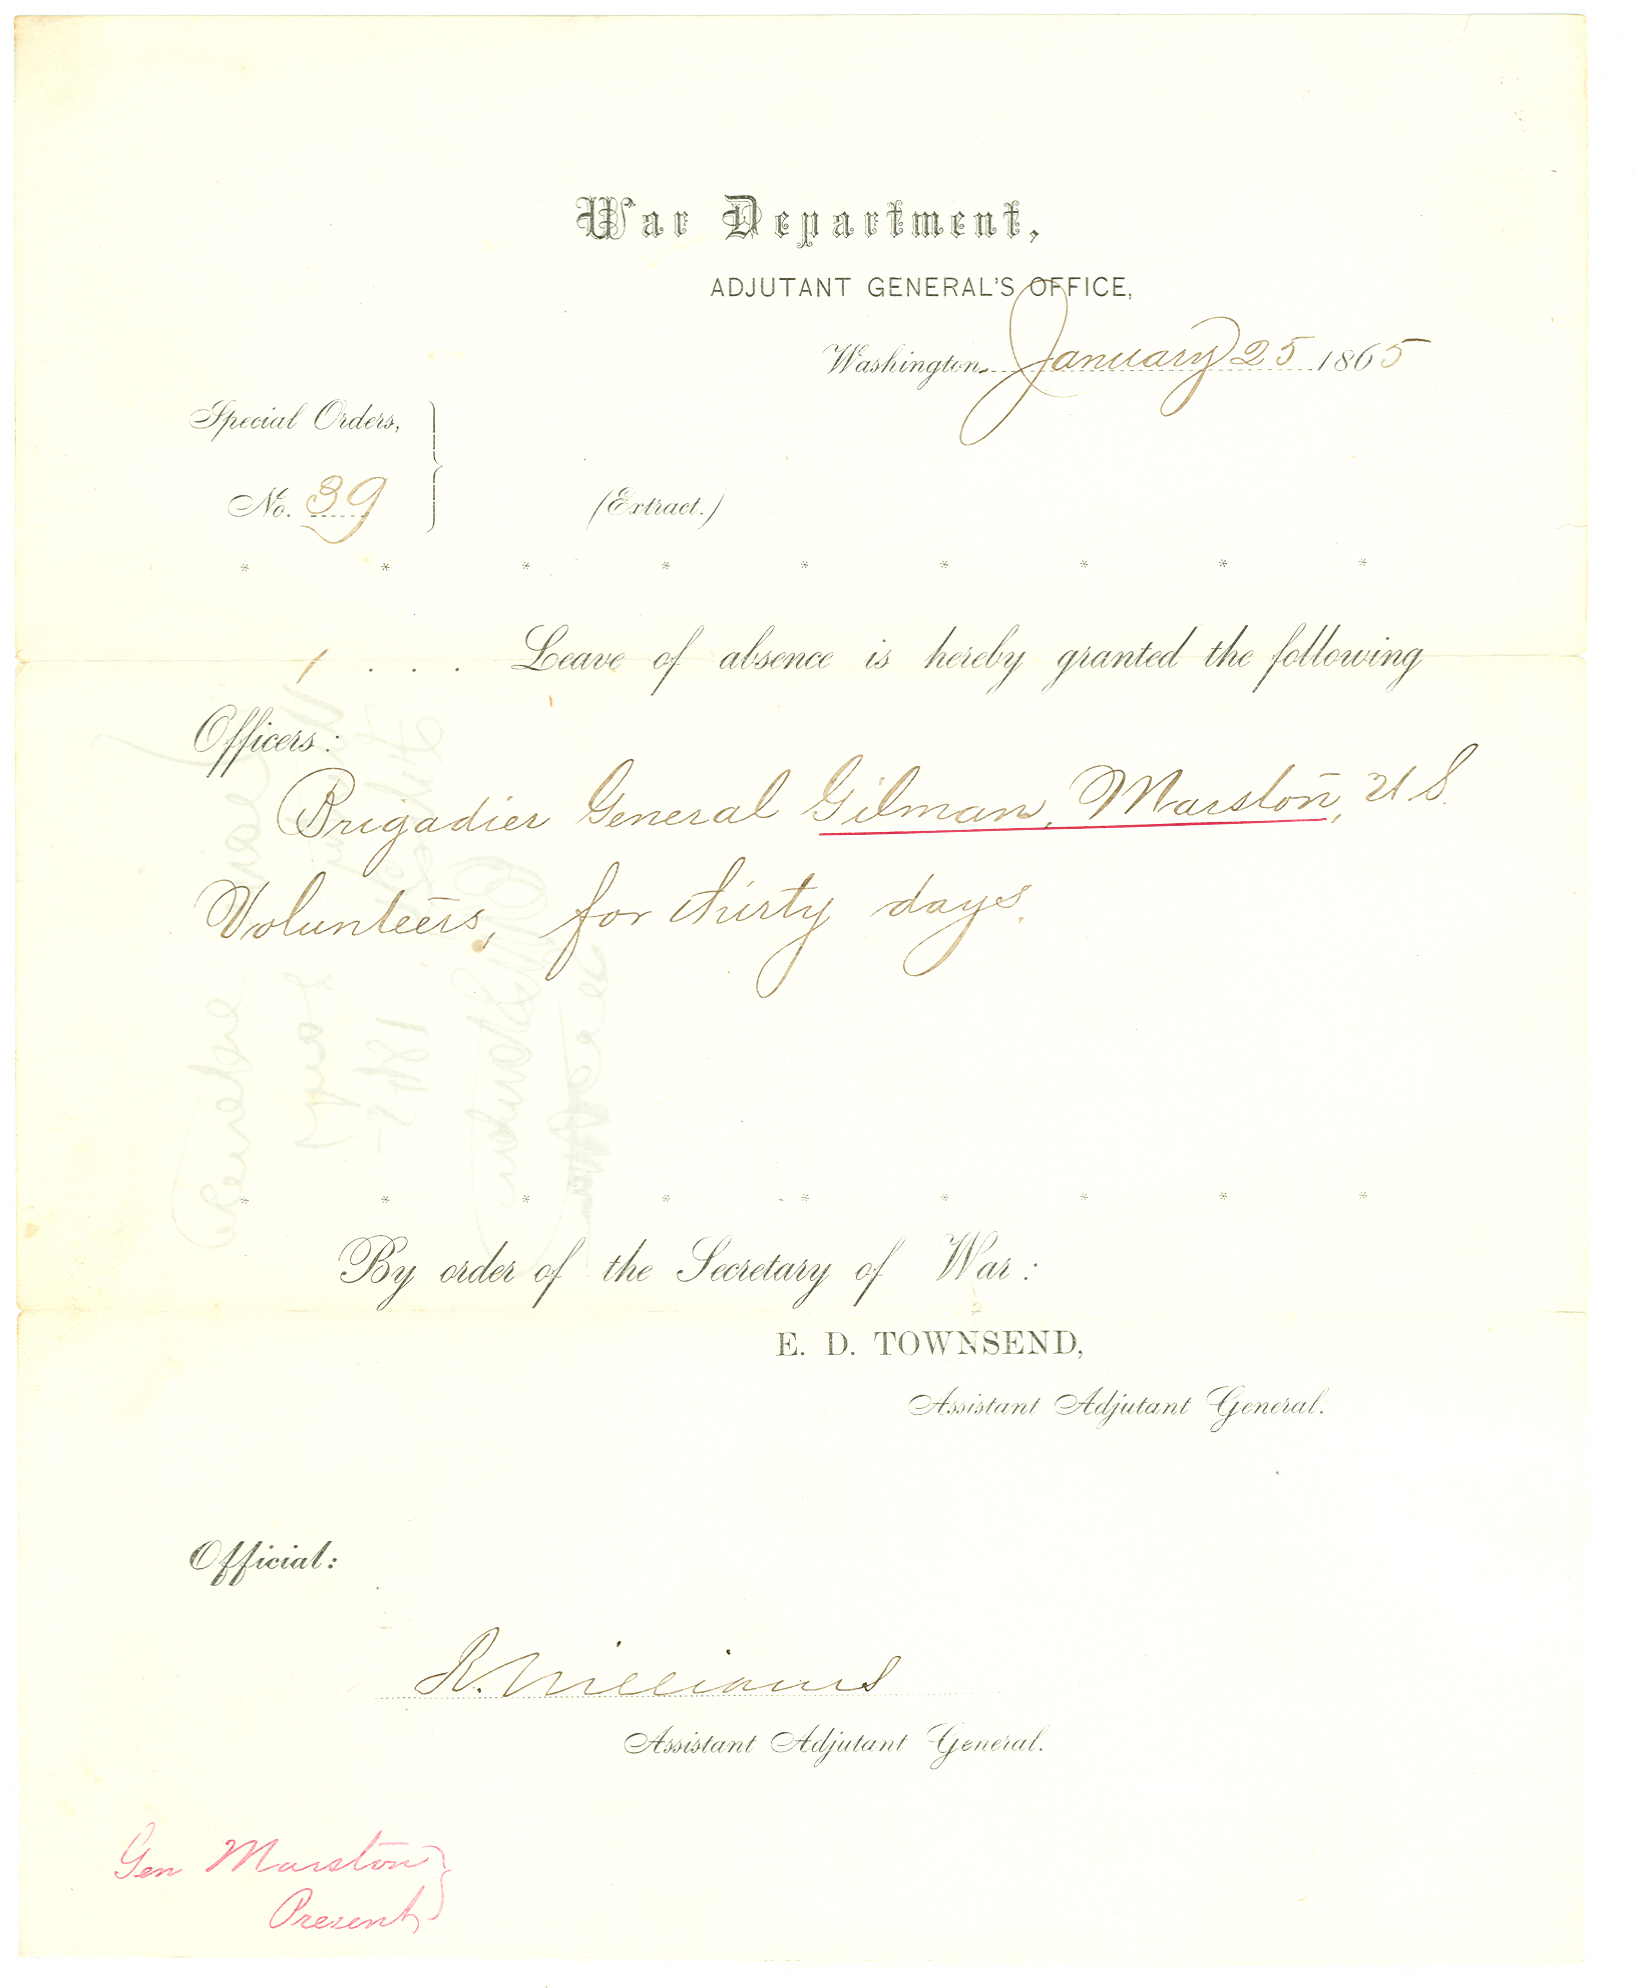 War Department,
ADJUTANT GENERAL'S OFFICE,
Washington, January 25 1865
Special Orders,
No. 39
(Extract.)
* * * * * * * * *
1 . . . Leave of absence is hereby granted the following
Officers:
Brigadier General Gilman, Marston, U S.
Volunteers, for thirty days.
* * * * * * * * *
By order of the Secretary of War:
E. D. TOWNSEND,
Assistant Adjutant General.
Official:
R. Williams
Assistant Adjutant General.
Gen Marston
Present